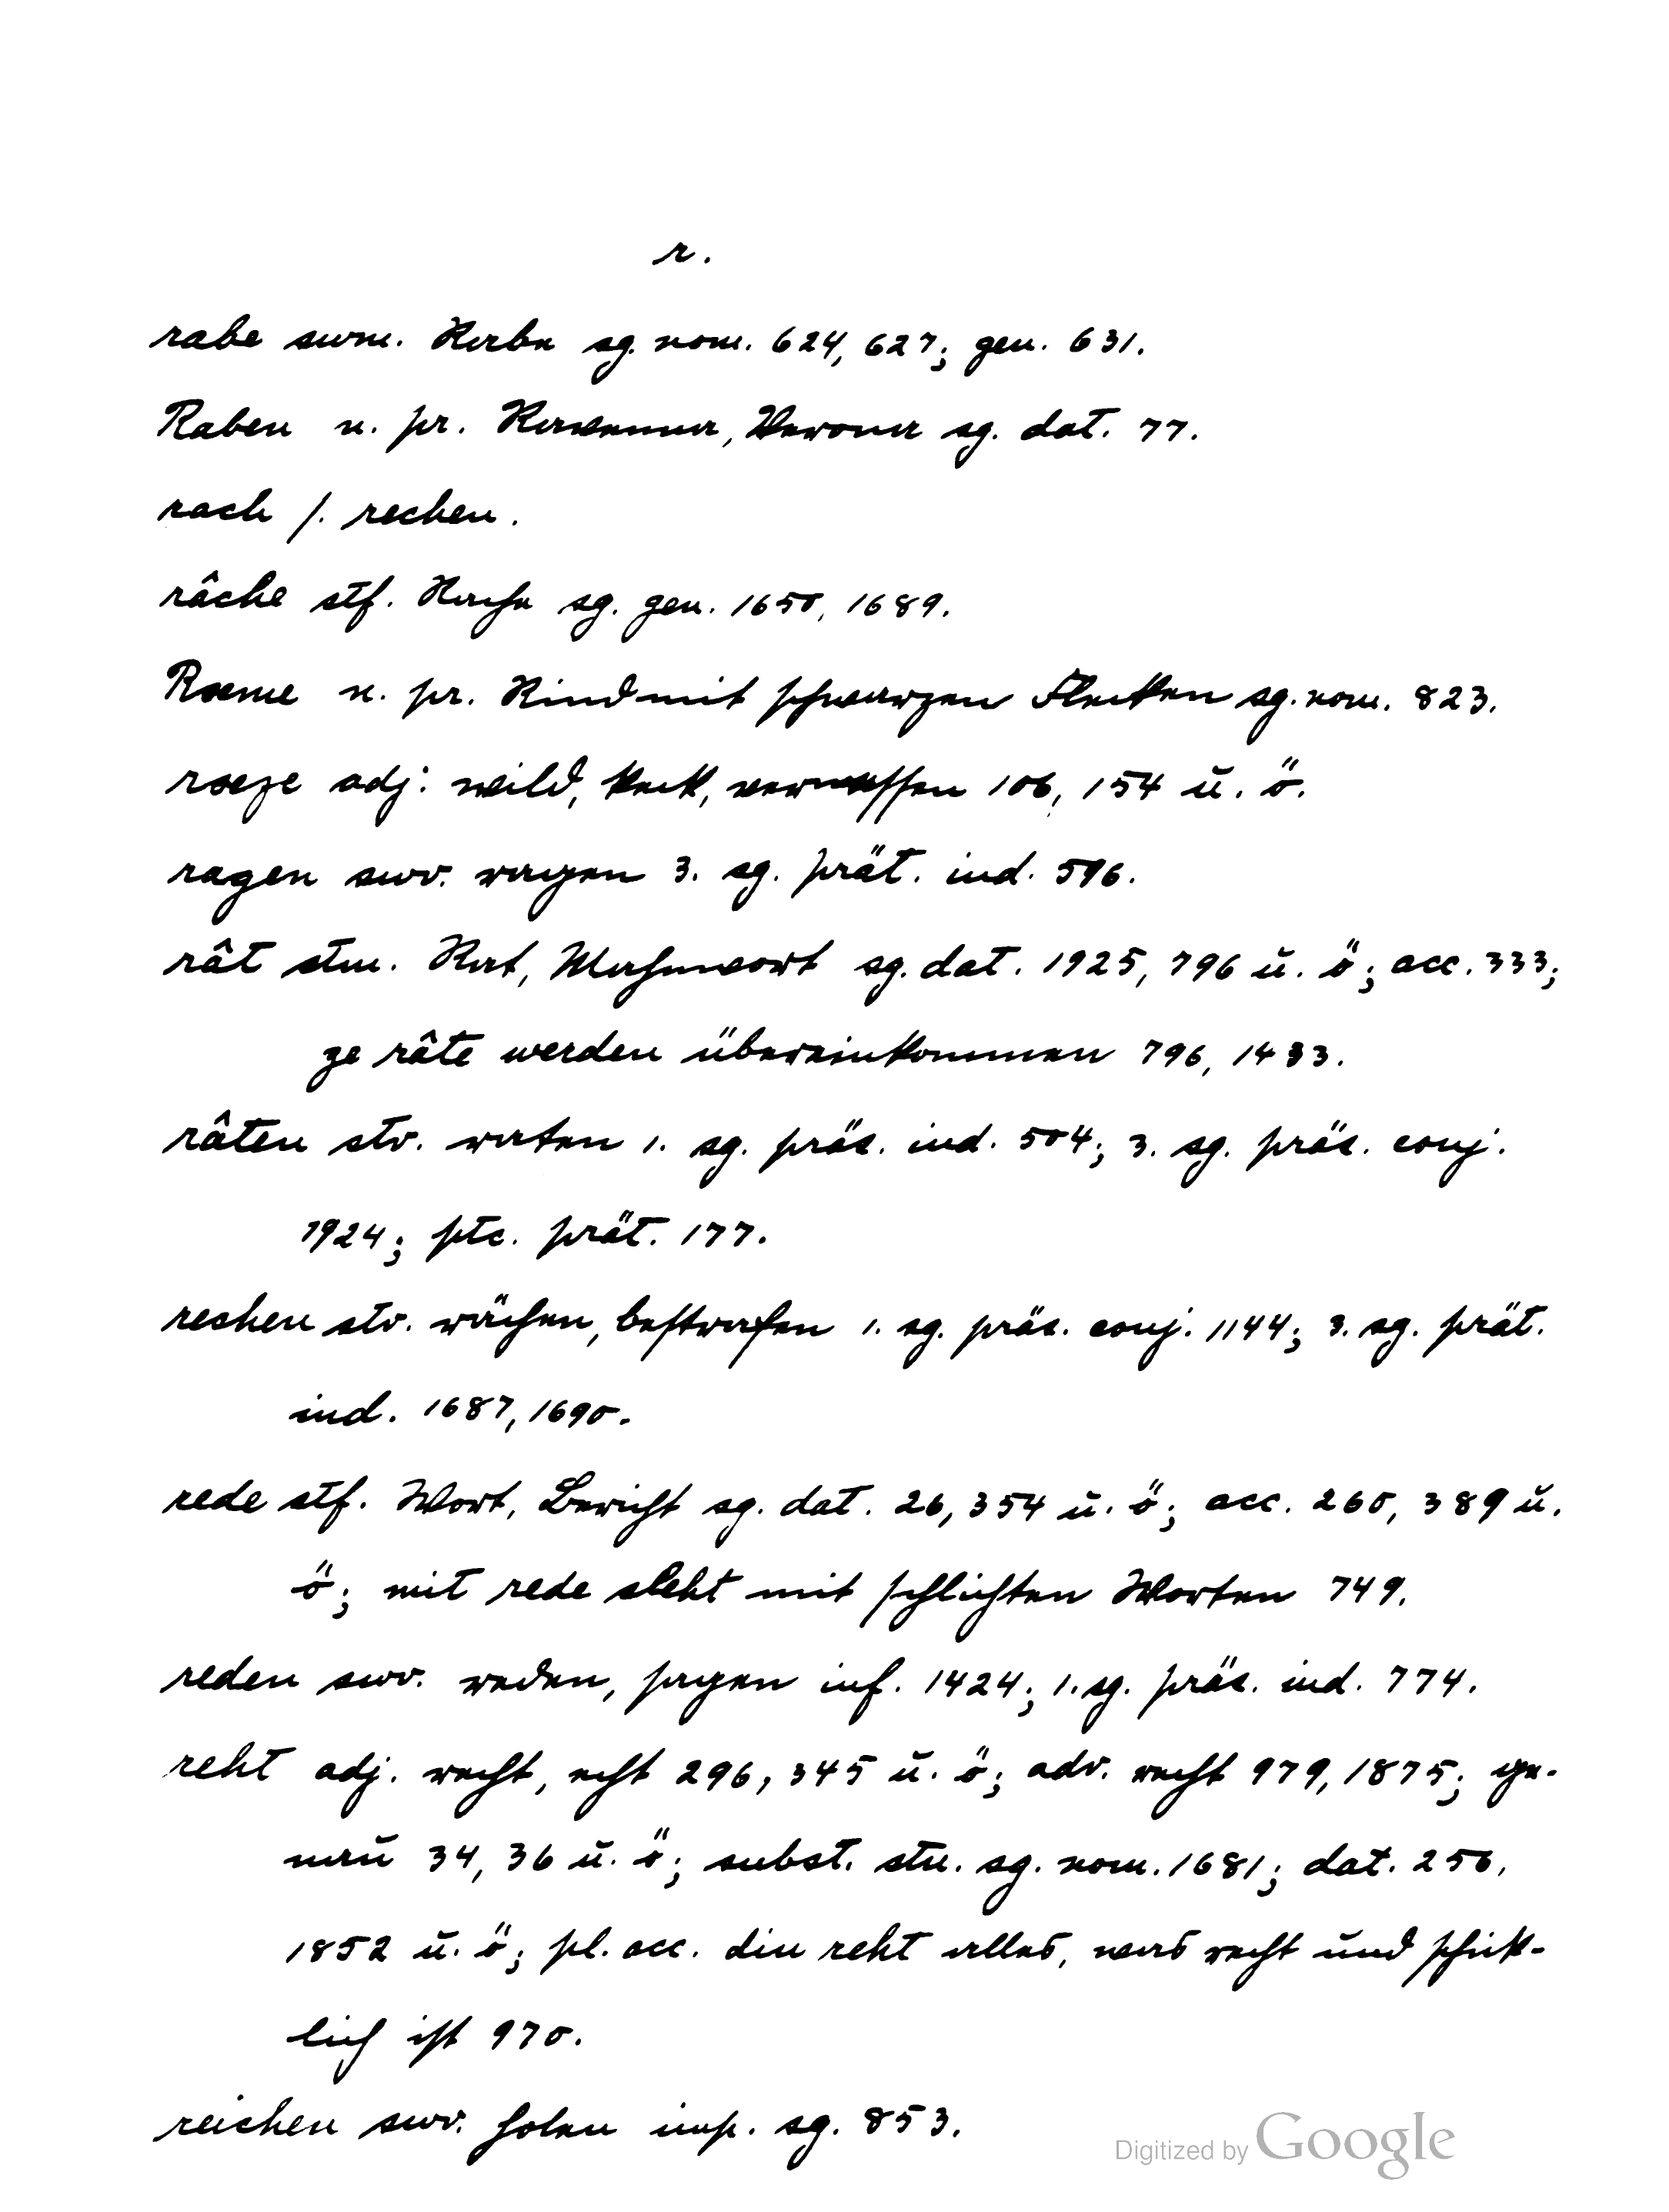 r.
rabe swm. Rabe sg. nom. 624, 627; gen. 631.
Raben n. pr. Ravenna, Verona sg. dat. 77.
rach s. rechen.
râche stf. Rache sg. gen. 1650, 1689.
Raeme n. pr. Rind mit schwarzen Flecken sg. nom. 823.
raeze adj. wild, keck, vermessen 106, 154 u. ö.
ragen swv. ragen 3. sg. prät. ind. 596.
rât stm. Rat, Mahnwort sg. dat. 1925, 796 u. ö; acc. 333;
ze râte werden übereinkommen 796, 1433.
râten stv. raten 1. sg. präs. ind. 504; 3. sg. präs. conj.
1924; ptc. prät. 177.
rechen stv. rächen, bestrafen 1. sg. präs. conj. 1144; 3. sg. prät.
ind. 1687, 1690.
rede stf. Wort, Bericht sg. dat. 26, 354 u. ö; acc. 260, 389 u.
ö; mit rede sleht mit schlichten Worten 749.
reden swv. reden, sagen inf. 1424; 1. sg. präs. ind. 774.
reht adj. recht, echt 296, 345 u. ö; adv. recht 979, 1875; ge-
nau 34, 36 u. ö; subst. stn. sg. nom. 1681; dat. 256,
1852 u. ö; pl. acc. diu reht alles, was recht und schick-
lich ist 970.
reichen swv. holen imp. sg. 853.
Digitized by Google